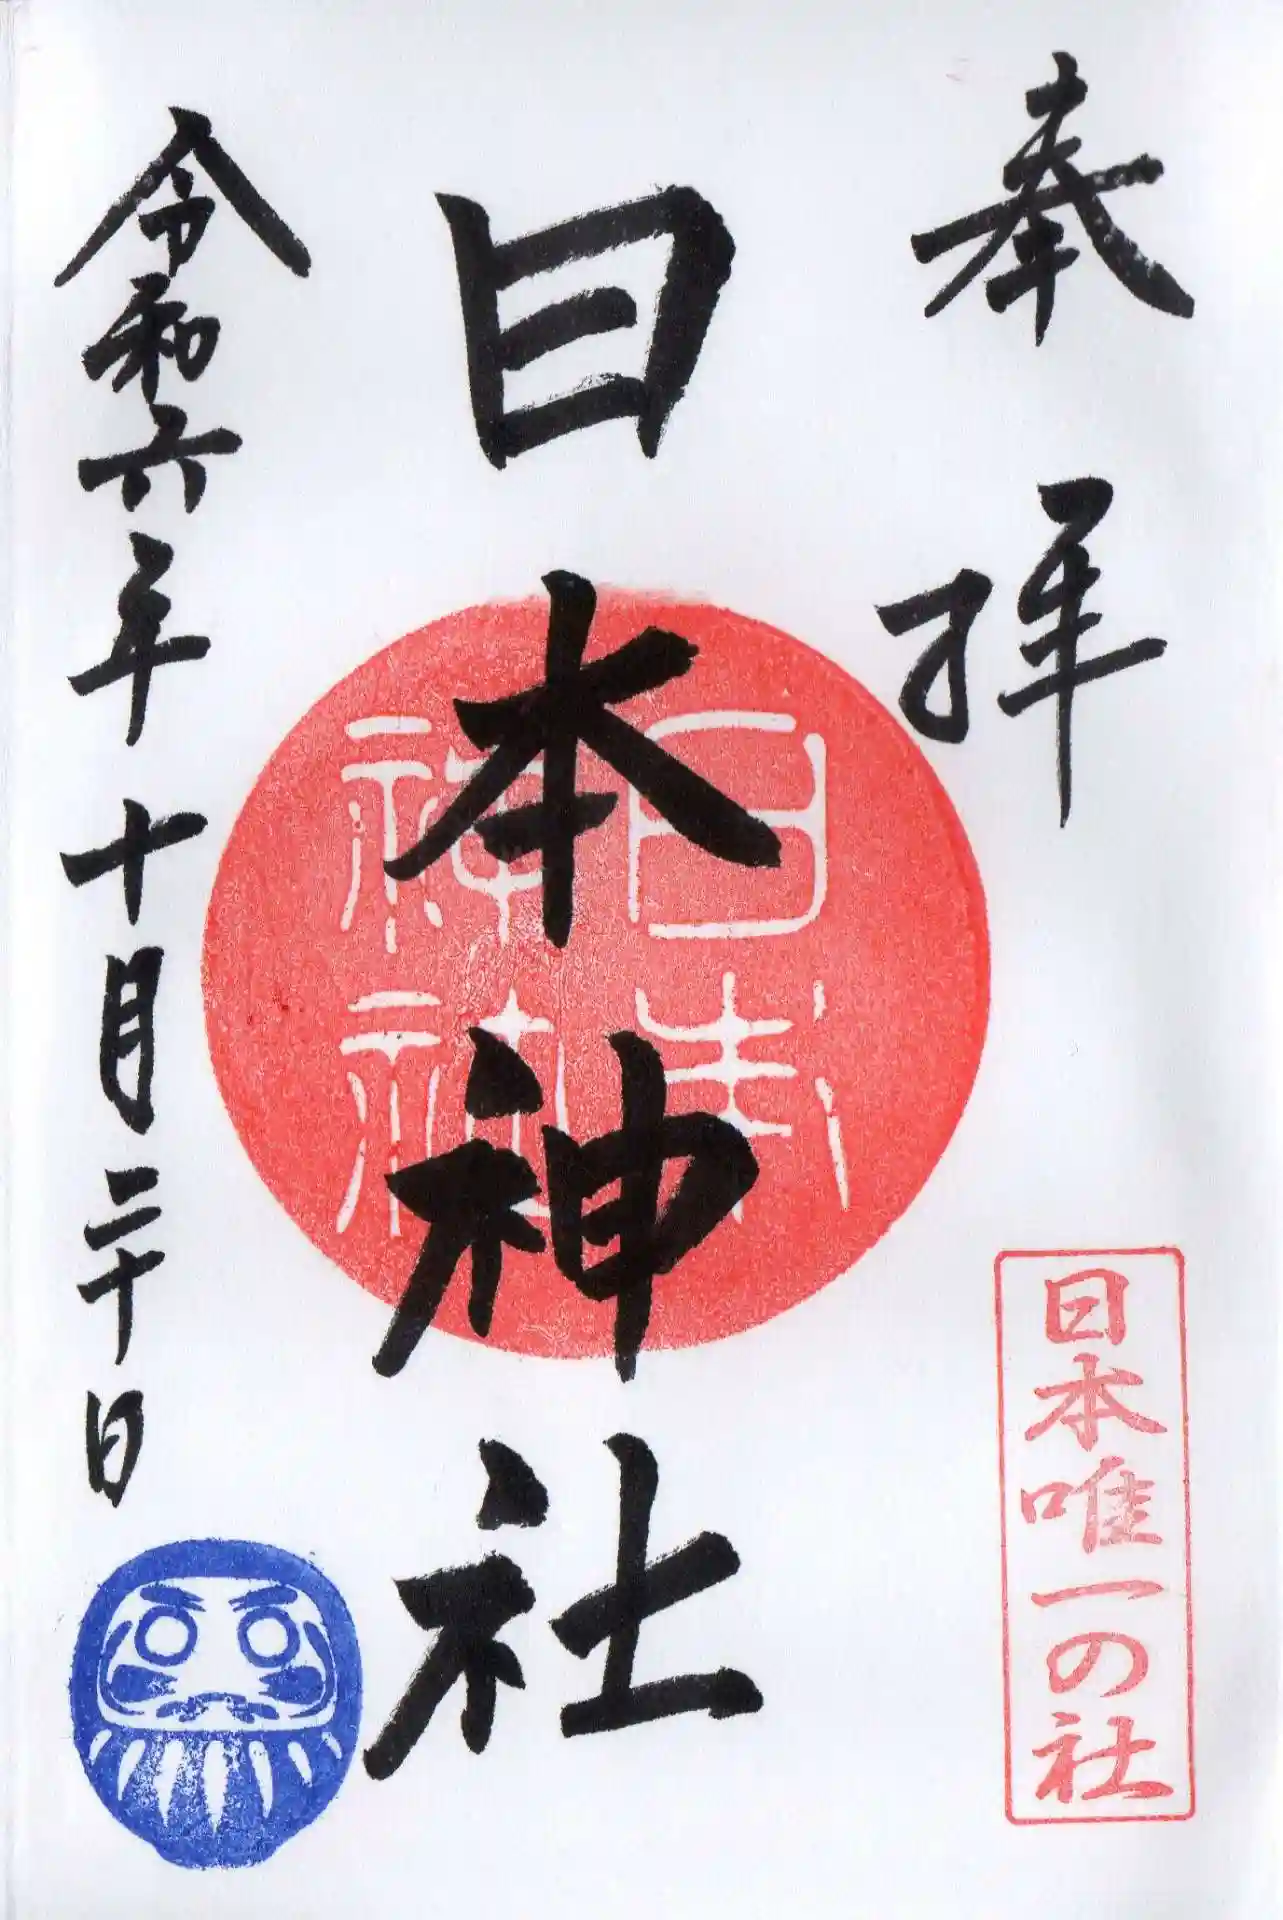 奉拝
日本唯一の社
日本神社
日本
神社
令和六年十月二十日